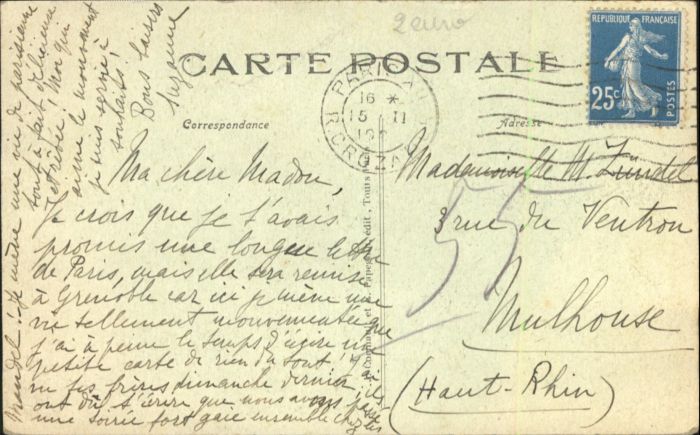 2 euro
CARTE POSTALE
RÉPUBLIQUE FRANÇAISE
25c
POSTES
PARIS
16 *
15 II
R. CROZA
Correspondance
Adresse
Ma chère Madou,
Je crois que je t'avais
promis une longue lettre
de Paris, mais elle sera remise
à Grenoble car ici je mène une
vie tellement mouvementée que
j'ai à peine le temps d'écrire une
petite carte de rien du tout! J'ai
vu tes frères dimanche dernier, ils
ont dû t'écrire que nous avons passé
une soirée fort gaie ensemble chez les
Mandel! Je mène une vie de parisienne
tout à fait délicieuse
et rêvée! Moi qui
aime le mouvement
je suis servie à
souhaits!
Bons baisers
Suzanne
Mademoiselle M. Zündel
3 rue du Ventron
Mulhouse
(Haut-Rhin)
55